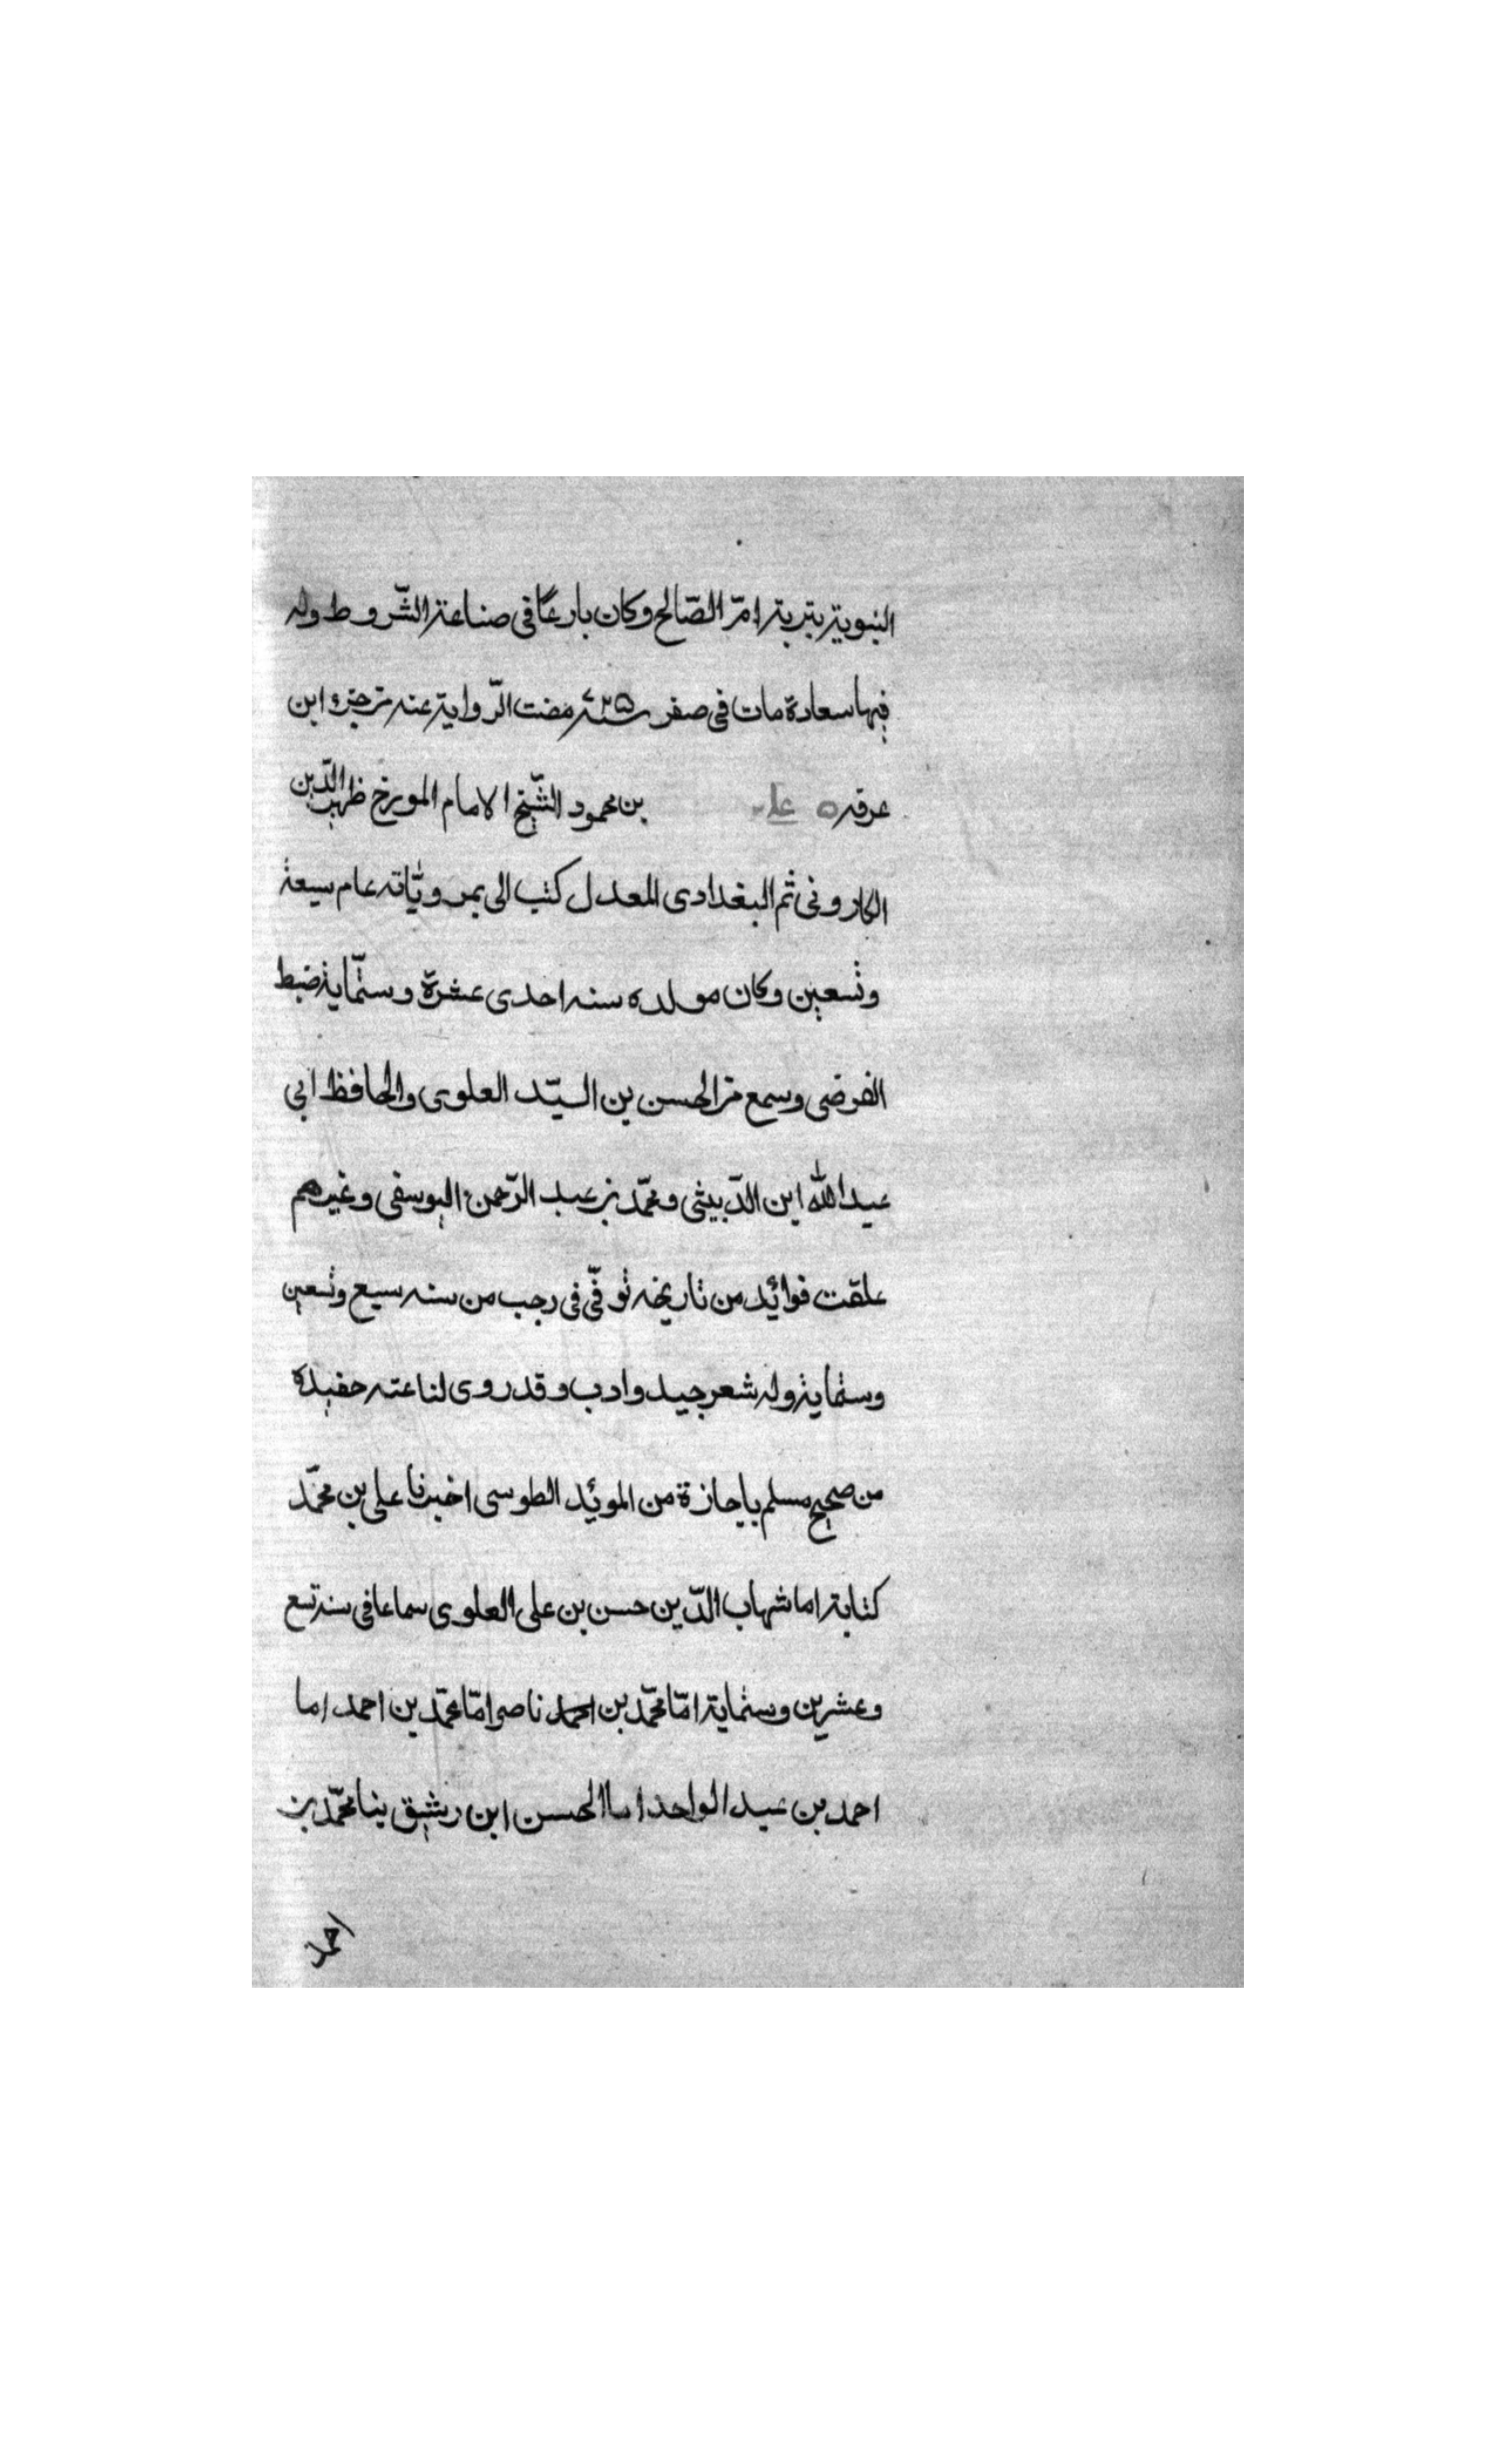 النبوية بتربة امّ الصّالح وكان بارعًا فى صناعة الشّروط وله
فيها سعادة مات فى صفر سنة ٧٢٥ مضت الرّواية عنه من جزء ابن
عرفه ٥ على بن محمود الشّيخ الامام المورخ ظهير الدّين
الكارونى ثم البغدادى المعدل كتب الى بمروياته عام سبعة
وتسعين وكان مولده سنه احدى عشرة وستّماية ضبط
الفرضى وسمع من الحسن بن السيّد العلوى والحافظ ابى
عبد الله ابن الدّبيثى ومحمّد بن عبد الرّحمن اليوسفى وغيرهم
علقت فوائد من تاريخه توفّى فى رجب من سنه سبع وتسعين
وستماية وله شعر جيد وادب وقد روى لنا عنه حفيده
من صحيح مسلم باجازة من الموئد الطوسى اخبرنا على بن محمّد
كتابة اما شهاب الدّين حسن بن على العلوى سماعا فى سنة تسع
وعشرين وستماية امّا محمّد بن احمد ناصر امّا محمّد بن احمد اما
احمد بن عبد الواحد اما الحسن ابن رشيق ينا محمّد بن
احمد